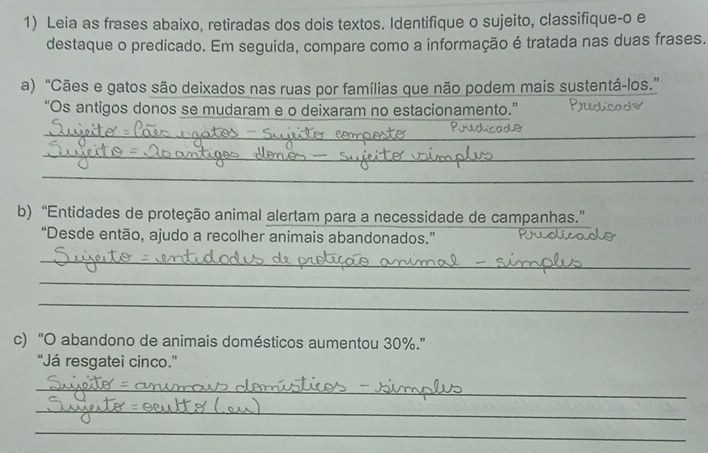 1) Leia as frases abaixo, retiradas dos dois textos. Identifique o sujeito, classifique-o e
destaque o predicado. Em seguida, compare como a informação é tratada nas duas frases.
a) "Cães e gatos são deixados nas ruas por famílias que não podem mais sustentá-los."
"Os antigos donos se mudaram e o deixaram no estacionamento." Predicado
Sujeito = Cães e gatos - Sujeito composto Predicado
Sujeito = Os antigos donos - sujeito simples
b) "Entidades de proteção animal alertam para a necessidade de campanhas."
"Desde então, ajudo a recolher animais abandonados." Predicado
Sujeito = entidades de proteção animal - simples
c) "O abandono de animais domésticos aumentou 30%."
"Já resgatei cinco."
Sujeito = animais domésticos - simples
Sujeito = oculto (eu)